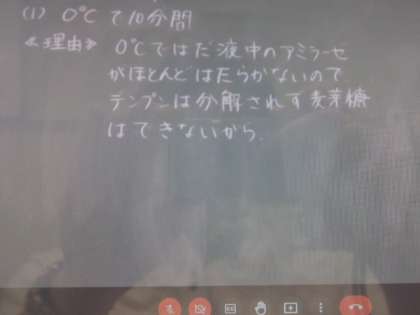 (1) 0℃で10分間
≪理由≫ 0℃ではだ液中のアミラーゼ
がほとんどはたらかないので
デンプンは分解されず麦芽糖
はできないから.